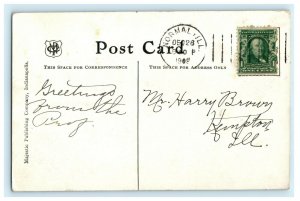 Post Card
NORMAL, ILL.
DEC 26
190
THIS SPACE FOR CORRESPONDENCE
THIS SPACE FOR ADDRESS ONLY
Majestic Publishing Company, Indianapolis.
Greetings
from the
Prof.
Mr. Harry Brown
Kempton
Ill.